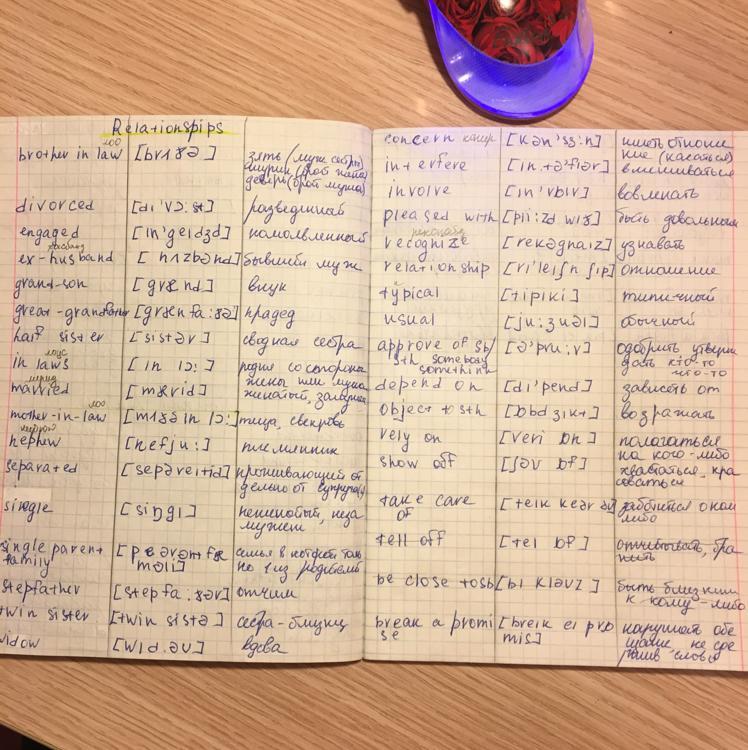 Relationspips
лоо
brother in law [brʌðə] зять (муж сестры)
шурин (брат жены)
деверь (брат мужа)
divorced [dɪ'vɔ:st] разведенный
engaged [ɪn'geɪdʒd] помолвленный
хасбанд
ex-husband [hʌzbənd] бывший муж
grand-son [grænd] внук
great-grandfather [grænfa:ðə] прадед
half sister [sɪstər] сводная сестра
лоус
in laws [ɪn lɔ:] родня со стороны
жены или мужа
married [mærɪd] женатый,
лоо
mother-in-law [mʌðə ɪn lɔ:] теща, свекровь
nephew [nefju:] племянник
separated [sepəreɪtɪd] проживающий от
дельно от супруга(и)
single [sɪŋgl] неженатый, неза
мужем
single parent
family [peərəmt fæ
məlɪ] семья в которой толь
ко 1 из родителей
stepfather [stepfa:ðər] отчим
twin sister [twɪn sɪstə] сестра-близнец
widow [wɪd.əʊ] вдова
concern [kən'sɜ:n] иметь отноше
ние (касаться)
interfere [ɪn.tə'fɪər] вмешиваться
involve [ɪn'vɒlv] вовлекать
pleased with [pli:zd wɪð] быть довольным
recognize [rekəgnaɪz] узнавать
relationship [rɪ'leɪʃnʃɪp] отношение
typical [tɪpɪkl] типичный
usual [ju:ʒuəl] обычный
approve of sb/
sth somebody
something [ə'pru:v] одобрить утверж
дать кто-то
что-то
depend on [dɪ'pend] зависеть от
object to sth [ɒbdʒɪkt] возражать
rely on [ɒn] полагаться
на кого-либо
show off [ʃəʊ ɒf] хвастаться, кра
соваться
take care
of [teɪk keər əv] заботиться о ком
либо
tell off [tel ɒf] отчитывать, бра
нить
be close to sb [bɪ kləʊz] быть близким
к кому-либо
break a promi
se [breɪk eɪ prɒ
mɪs] нарушать обе
щание, не сде
ржав слова